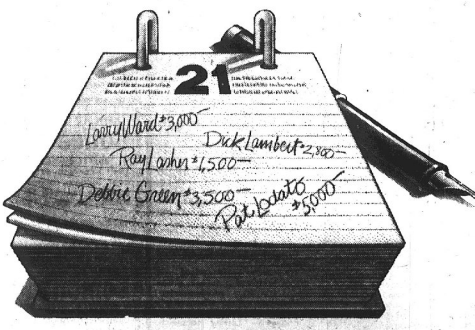 21
Larry Ward $3,000—
Dick Lambert $2,800—
Ray Lasher $1,500—
Debbie Green $3,500—
Pat Lodato $5,000—